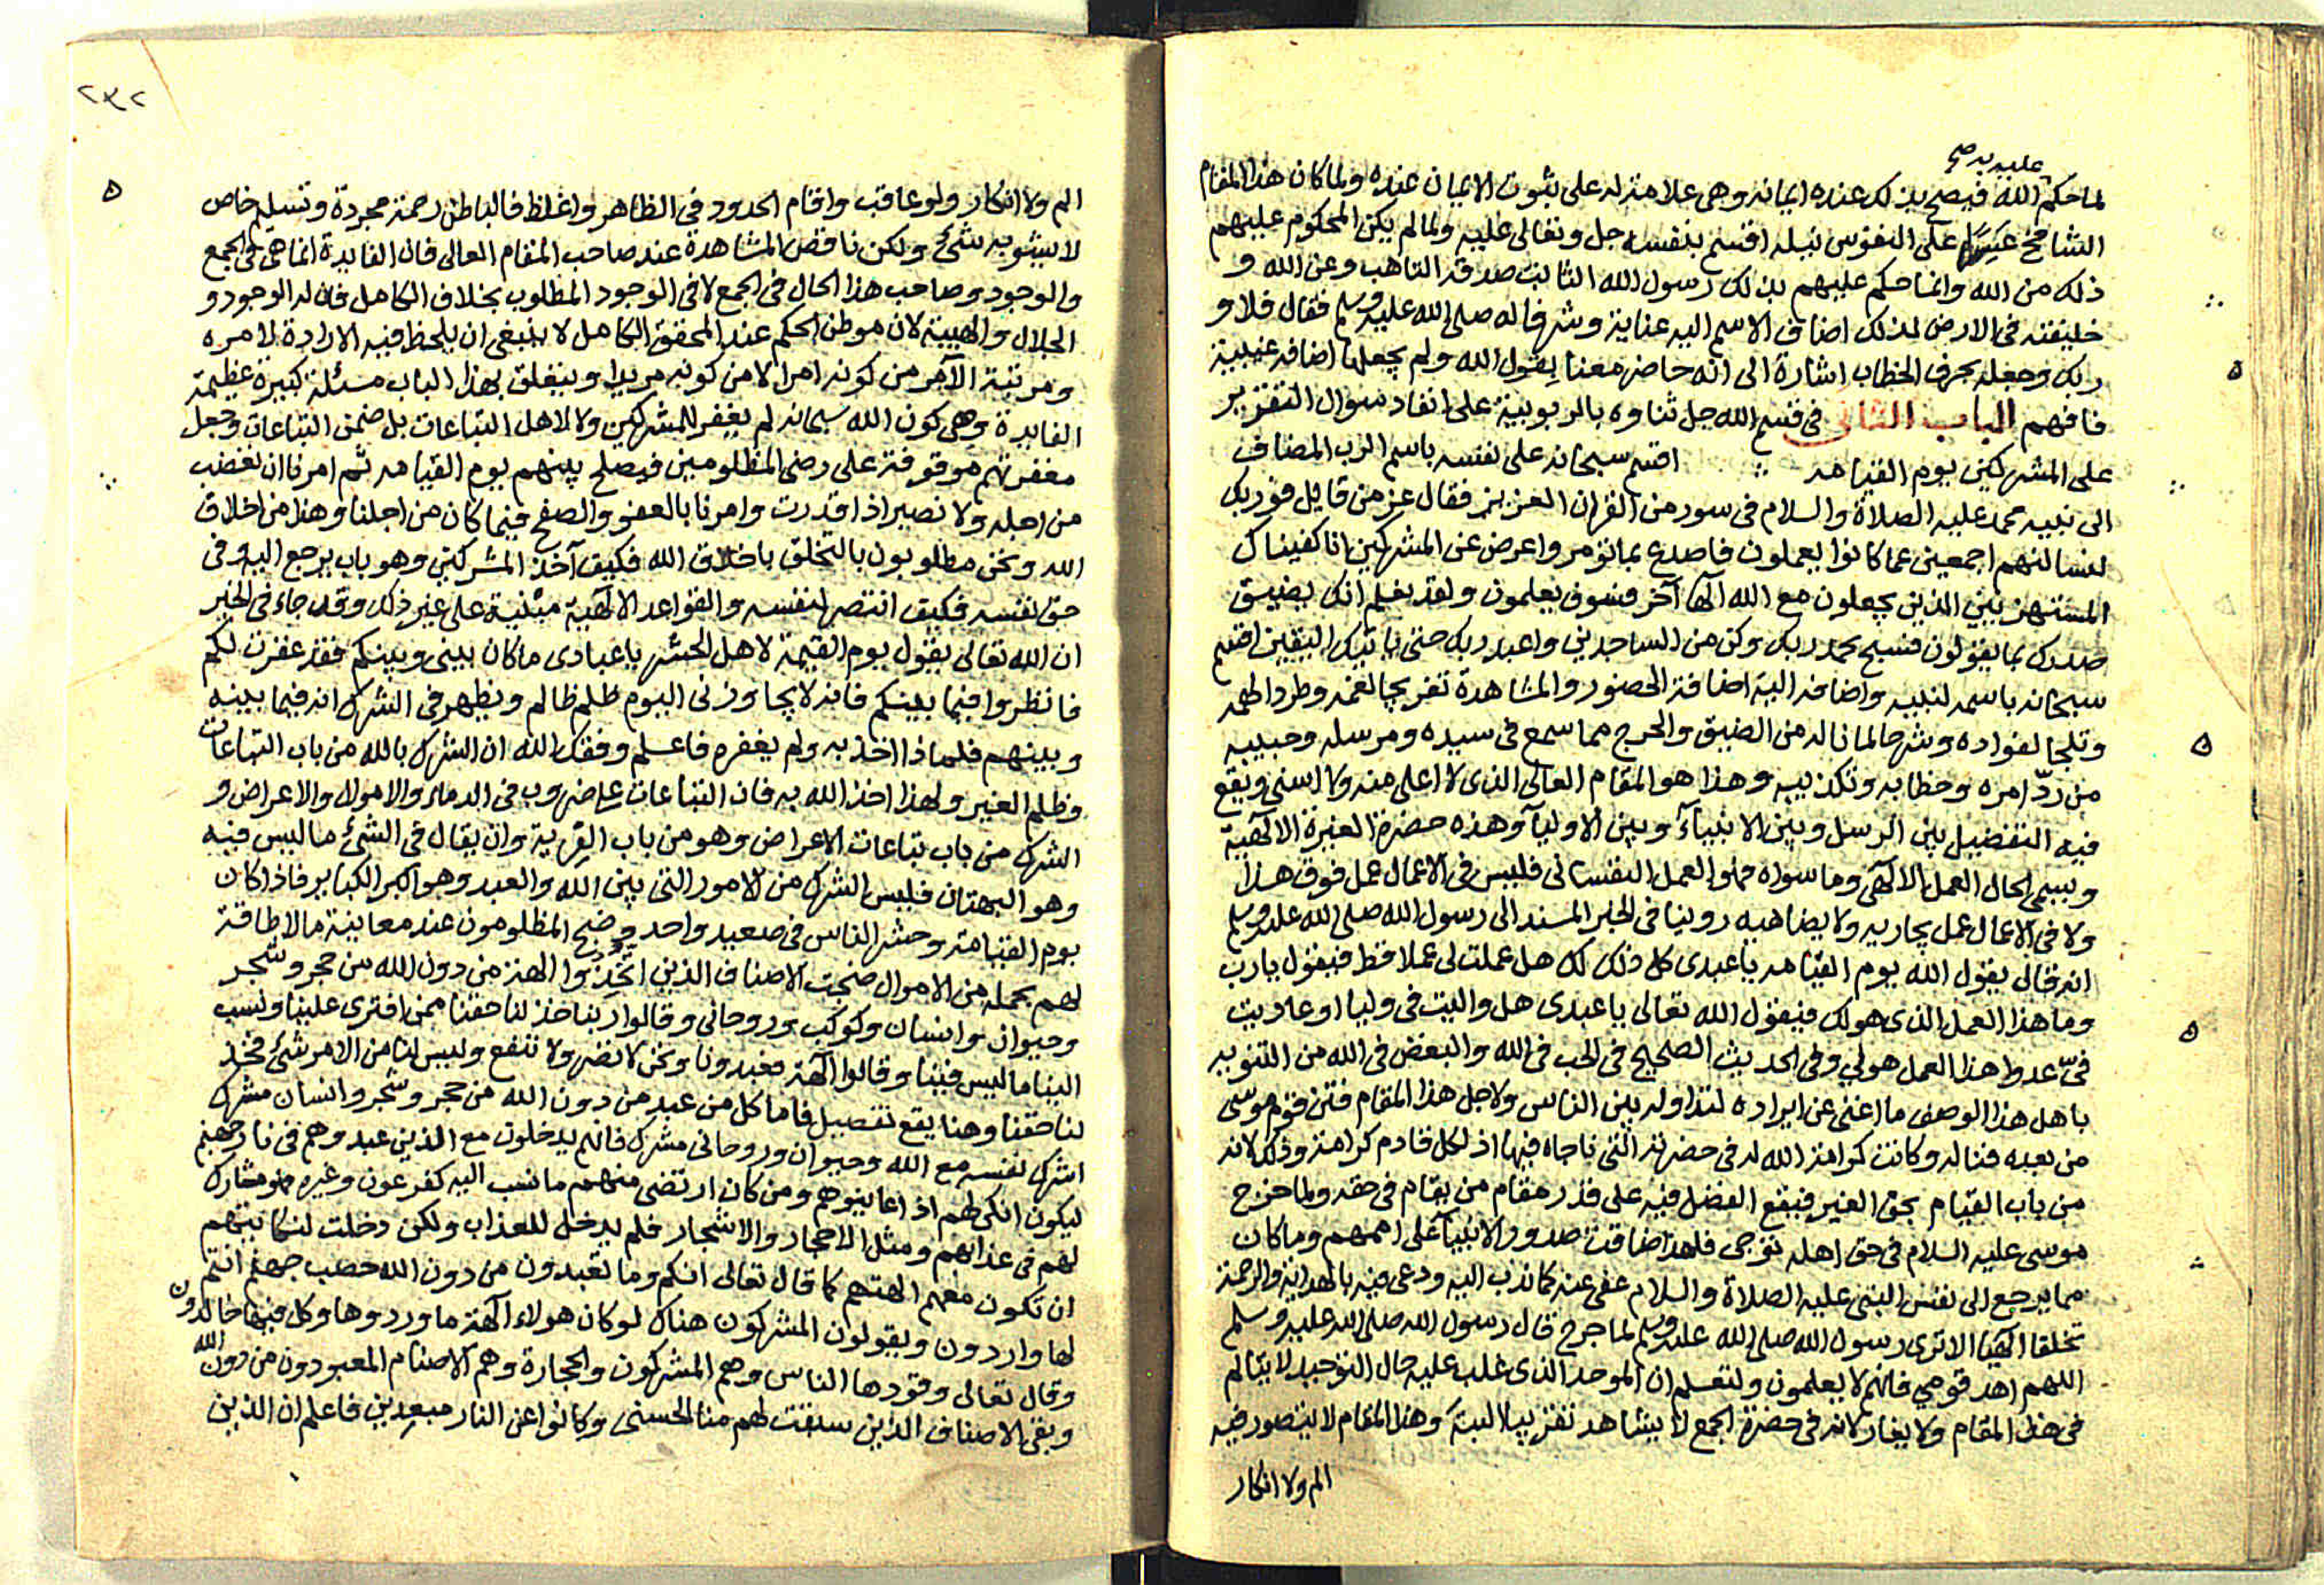 عليه به صح
لما حكم الله فيصح بذلك عنده ايمانه وهى علامة له على ثبوت الايمان عنده ولما كان هذا المقام
الشامخ عسيرا على النفوس نيله اقسم بنفسه جل وتعالى عليه ولما لم يكن المحكوم عليهم
ذلك من الله وانما حكم عليهم بذلك رسول الله الثابت صدقه النايب وعن الله و
خليفته فى الارض لذلك اضاف الاسم اليه عناية وشرفا له صلى الله عليه وسلم فقال فلا و
ربك وجعله بحرف الخطاب اشارة الى انه حاضر معنا يقول الله ولم يجعلها اضافه غيبية
فافهم الباب الثانى فى قسم الله جل ثناوه بالربوبية على انفاد سوال التقرير
على المشركين يوم القيامه ∴ اقسم سبحانه على نفسه باسم الرب المضاف
الى نبيه محمد عليه الصلاة والسلام فى سور من القران العزيز فقال عز من قايل فوربك
لنسالنهم اجمعين عما كانوا يعملون فاصدع بما تومر واعرض عن المشركين انا كفيناك
المستهزيين الذين يجعلون مع الله الها آخر فسوف يعلمون ولقد نعلم انك يضيق
صدرك بما يقولون فسبح بحمد ربك وكن من الساجدين واعبد ربك حتى ياتيك اليقين اقسم
سبحانه باسمه لنبيه واضافه اليه اضافة الحضور والمشاهدة تفريجا لغمه وطردا لهمه
وثلجا لفواده وشرحا لما ناله من الضيق والحرج مما سمع فى سيده ومرسله وحبيبه
من ردّ امره وخطابه وتكذيبه وهذا هو المقام العالى الذى لا اعلى منه ولا اسنى ويقع
فيه التفضيل بين الرسل وبين الانبياء وبين الاوليآ وهذه حضرة الغيرة الالهية
ويسمى الحال العمل الالهى وما سواه فهو العمل النفسانى فليس فى الاعمال عمل فوق هذا
ولا فى الاعمال عمل يجاريه ولا يضاهيه روينا فى الخبر المسند الى رسول الله صلى الله عليه وسلم
انه قال يقول الله يوم القيامه يا عبدى كل ذلك لك هل عملت لى عملا قط فيقول يارب
وما هذا العمل الذى هو لك فيقول الله تعالى يا عبدى هل واليت فى وليا او عاديت
فىّ عدوا هذا العمل هو لي وفى الحديث الصحيح فى الحب فى الله والبغض فى الله من التنويه
باهل هذا الوصف ما اغنى عن ايراده لتداوله بين الناس ولاجل هذا المقام فتن قوم موسى
من بعده فناله وكانت كرامة الله له فى حضرته التى ناجاه فيها اذ لكل قادم كرامة وذلك لانه
من باب القيام بحق الغير فيقع الفضل فيه على قدر مقام من يقام فى حقه ولما خرج
موسى عليه السلام فى حق اهله نوجى فلهذا ضاقت صدور الانبيآ على اممهم وما كان
مما يرجع الى نفس النبى عليه الصلاة والسلام عفى عنه كما ندب اليه ودعى فيه بالهداية والرحمة
تخلقا الهيا الا ترى رسول الله صلى الله عليه وسلم لما جرح قال رسول الله صلى الله عليه وسلم
اللهم اهد قومي فانهم لا يعلمون ولتعلم ان الموحد الذى غلب عليه حال التوحيد لا يتالم
فى هذا المقام ولا يغار لانه فى حضرة الجمع لا يشاهد تقريبا البتة وهذا المقام لا يتصور فيه
الم ولا انكار
٢٣٢
الم ولا انكار ولو عاقب واقام الحدود فى الظاهر واغلظ فالباطن رحمة مجردة وتسليم خاص
لا يشوبه شئ ولكن ناقص المشاهدة عند صاحب المقام العالى فان الفايدة انما هى فى الجمع
والوجود وصاحب هذا الحال فى الجمع لا فى الوجود المطلوب بخلاف الكامل فان له الوجود و
الجلال والهيبة لان موطن الحكم عند المحقق الكامل لا ينبغى ان يلحظ فيه الارادة للامره
ومرتبة الآمر من كونه امرا لا من كونه مريدا ويتعلق بهذا الباب مسئلة كبيرة عظيمة
الفايدة وهى كون الله سبحانه لم يغفر للمشركين ولا لاهل التباعات بل ضمن التباعات وجعل
مغفرتهم موقوفة على رضى المظلومين فيصلح بينهم يوم القيامه ثم امرنا ان نغضب
من اجله ولا نصبر اذا قدرت وامرنا بالعفو والصفح فيما كان من اجلنا وهذا من اخلاق
الله ونحن مطلوبون بالتخلق باخلاق الله فكيف آخذ المشركين وهو باب يرجع اليه وفى
حق نفسه فكيف انتصر لنفسه والقواعد الالهية مبنية على غير ذلك وقد جاء فى الخبر
ان الله تعالى يقول يوم القيمة لاهل الحشر يا عبادى ما كان بينى وبينكم فقد غفرت لكم
فانظروا فيما بينكم فانه لا يجاوزنى اليوم ظلم ظالم ويظهر فى الشرك انه فيما بينه
وبينهم فلماذا اخذ به ولم يغفره فاعلم وفقك الله ان الشرك بالله من باب التباعات
وظلم الغير ولهذا اخذ الله به فان التباعات على ضروب فى الدماء والاموال والاعراض و
الشرك من باب تباعات الاعراض وهو من باب الفرية وان يقال فى الشئ ما ليس فيه
وهو البهتان فليس الشرك من الامور التى بين الله والعبد وهو اكبر الكباير فاذا كان
يوم القيامة وحشر الناس فى صعيد واحد وضج المظلومون عند معاينة ما لا طاقة
لهم بحمله من الاهوال ضجت الاصناف الذين اتّخذوا الهة من دون الله من حجر وشجر
وحيوان وانسان وكوكب وروحانى وقالوا ربنا خذ لنا حقنا ممن افترى علينا ونسب
الينا ما ليس فينا وقالوا آلهة فعبدونا ونحن لا نضر ولا ننفع وليس لنا من الامر شئ فخذ
لنا حقنا وهنا يقع تفصيل فاما كل من عبد من دون الله من حجر وشجر وانسان مشرك
اشرك نفسه مع الله وحيوان وروحانى مشرك فانهم يدخلون مع الذين عبدوهم فى نار جهنم
ليكون انكى لهم اذا عاينوهم ومن كان ارتضى منهم ما نسب اليه كفرعون وغيره فهو مشارك
لهم فى عذابهم ومثل الاحجار والاشجار فلم يدخل للعذاب ولكن دخلت لنكايتهم
ان تكون معهم الهتهم كما قال تعالى انكم وما تعبدون من دون الله حصب جهنم انتم
لها واردون ويقولون المشركون هناك لو كان هولاء آلهة ما وردوها وكل فيها خالدون
وقال تعالى وقودها الناس وهم المشركون والحجارة وهم الاصنام المعبودون من دون الله
وبقى الاصناف الذين سبقت لهم منا الحسنى وكانوا عن النار مبعدين فاعلم ان الذين